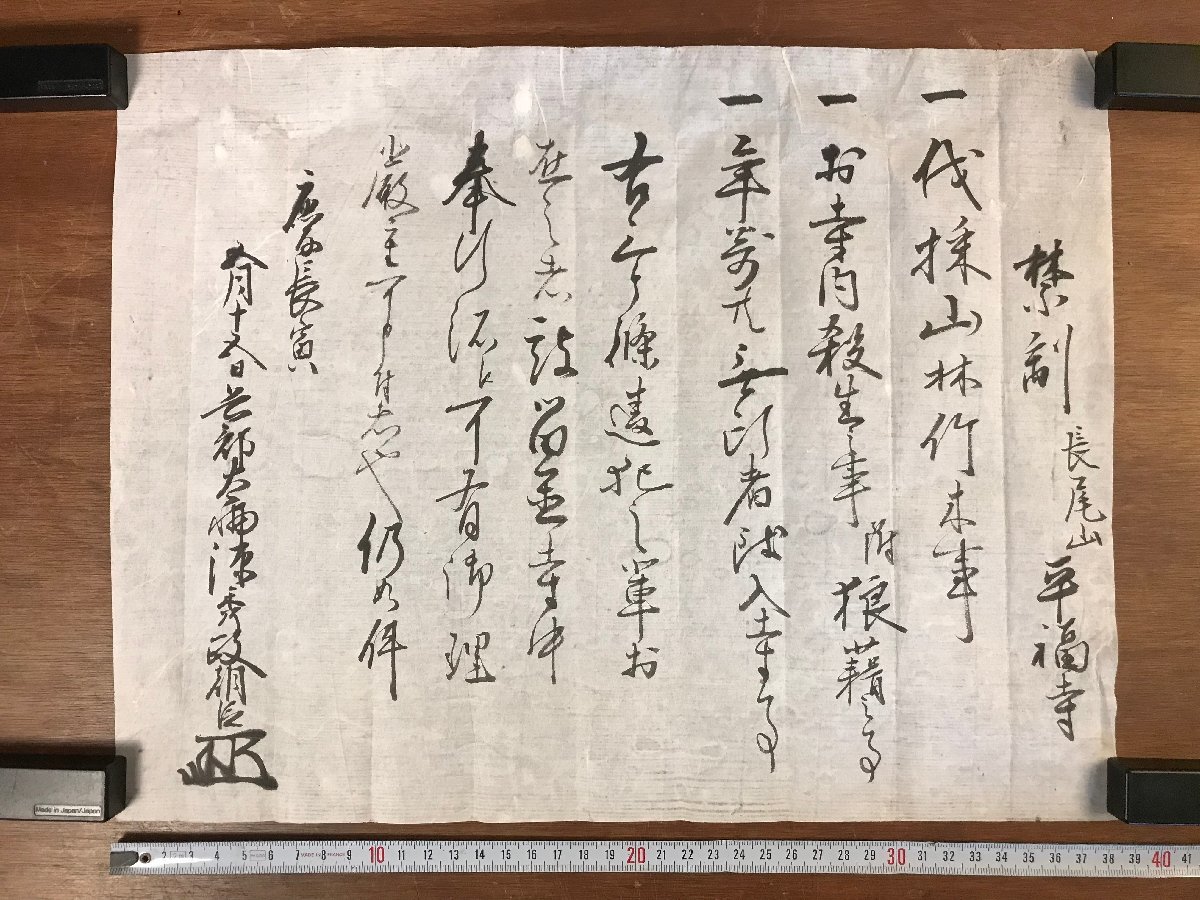 禁制 長尾山 平福寺
一 伐採山林竹木事
一 於寺内殺生之事 附 狼藉之事
一 年貢 無 者 入 事
右今條違犯之輩於
在之者 留置寺中
奉行 可有御理
厳重可申付者也仍如件
慶長寅
五月十五日 兵部大輔源秀政朝臣
Made in Japan/Japon
2 3 4 5 6 7 8 9 10 11 12 13 14 15 16 17 18 19 20 21 22 23 24 25 26 27 28 29 30 31 32 33 34 35 36 37 38 39 40 41